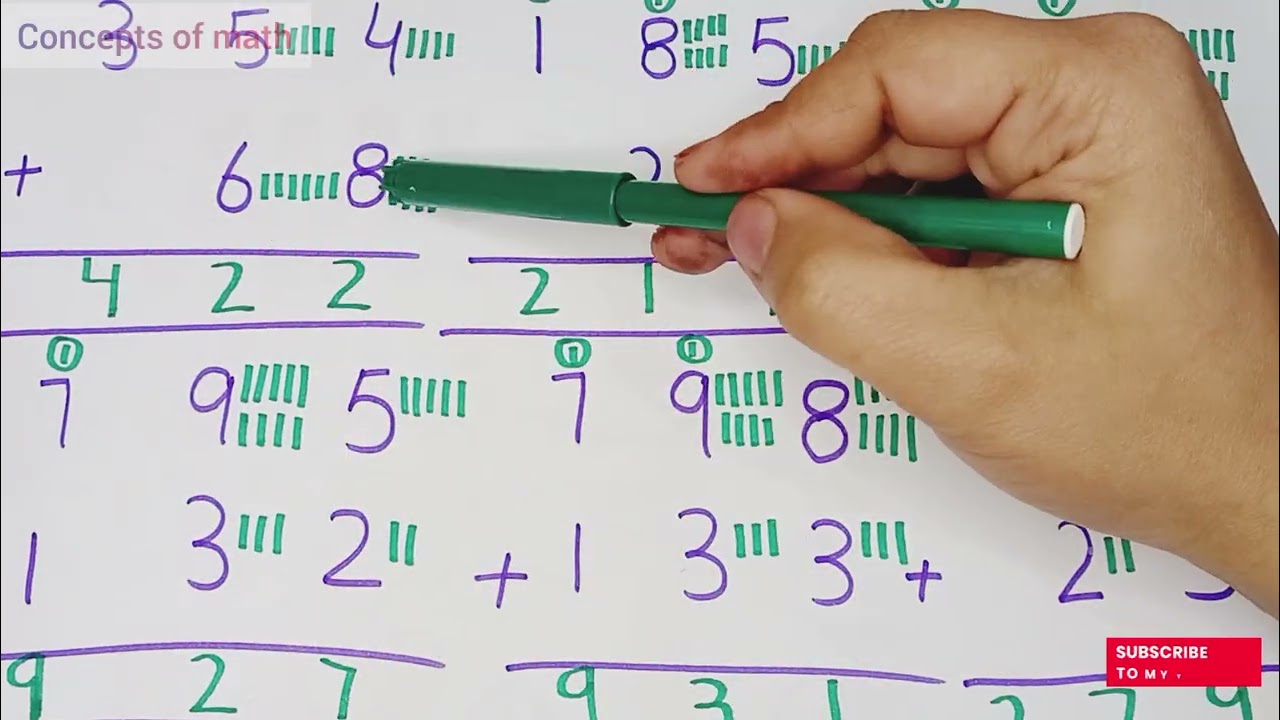 Concepts of math
3 5 4 1 8 5
+ 6 8 2
4 2 2 2 1
1 1 1
7 9 5 7 9 8
1 3 2 + 1 3 3 + 2
9 2 7 9 3 1 2 7 9
SUBSCRIBE
TO MY